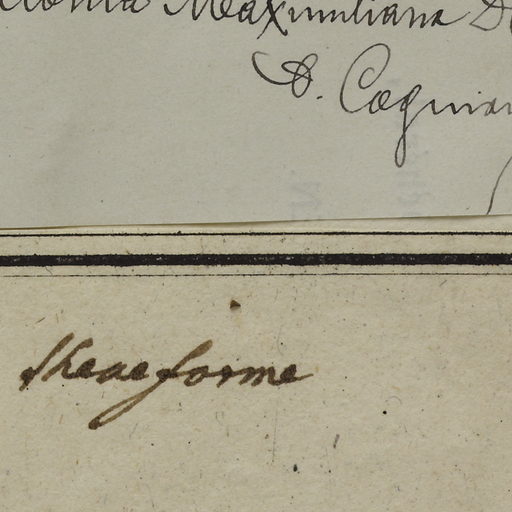 Maximiliana D
D. Cogniau
theaeforme